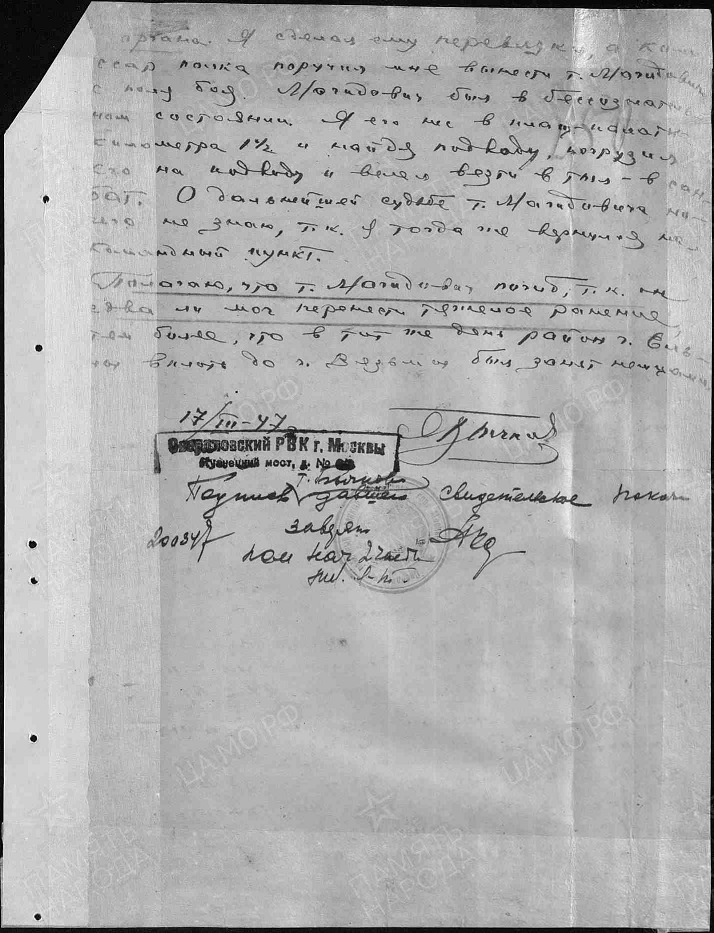 ргана. Я сделал ему перевязку, а коми
ссар полка поручил мне вынести т. Магидович
с поля боя. Магидович был в бессознатель
ном состоянии. Я его нес в плащ-палатк
километра 1½ и найдя подводу, погрузил
его на подводу и велел везти в тыл - в сан-
бат. О дальнейшей судьбе т. Магидовича ни-
чего не знаю, т.к. я тогда же вернулся на
командный пункт.
Полагаю, что т. Магидович погиб, т.к. он
едва ли мог перенести тяжелое ранение,
тем более, что в тот же день район г. Ель-
ни вплоть до г. Вязьмы был занят немцами.
17/III-47
Свердловский РВК г. Москвы
Кузнецкий мост, д. №
т. Бычков
Подпись давшего свидетельское показ
20034 заверяю
пом нач 2 части
ЦАМО.РФ
ПАМЯТЬ НАРОДА